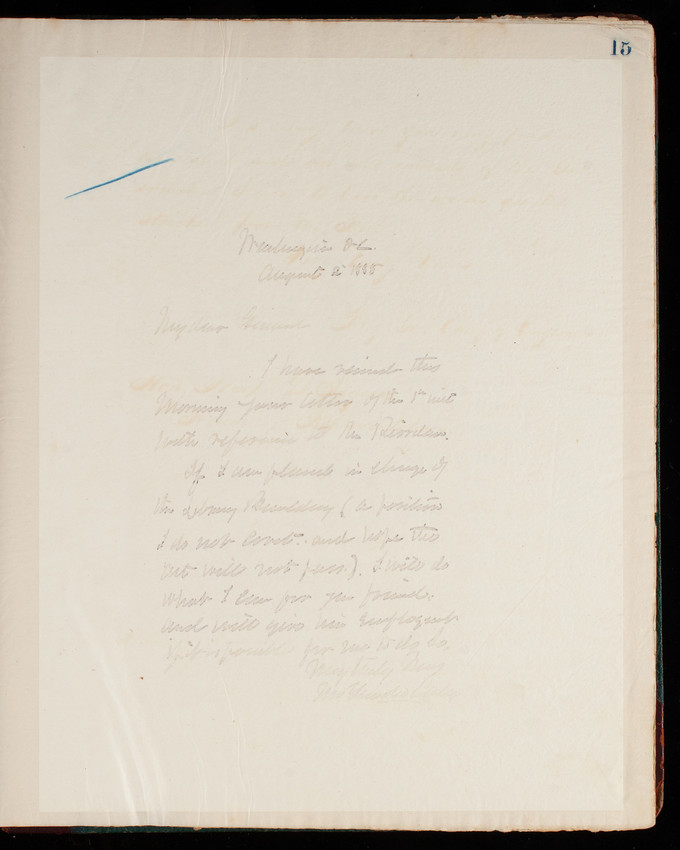 15
Washington D.C.
August 2 1888
My dear General
I have received this
morning your letter of the 1st inst
with reference to Mr Riordan.
If I am placed in charge of
the Library Building (a position
I do not covet and hope the
bill will not pass). I will do
what I can for your friend
and will give him employment
if possible for me to do so
Very truly yours